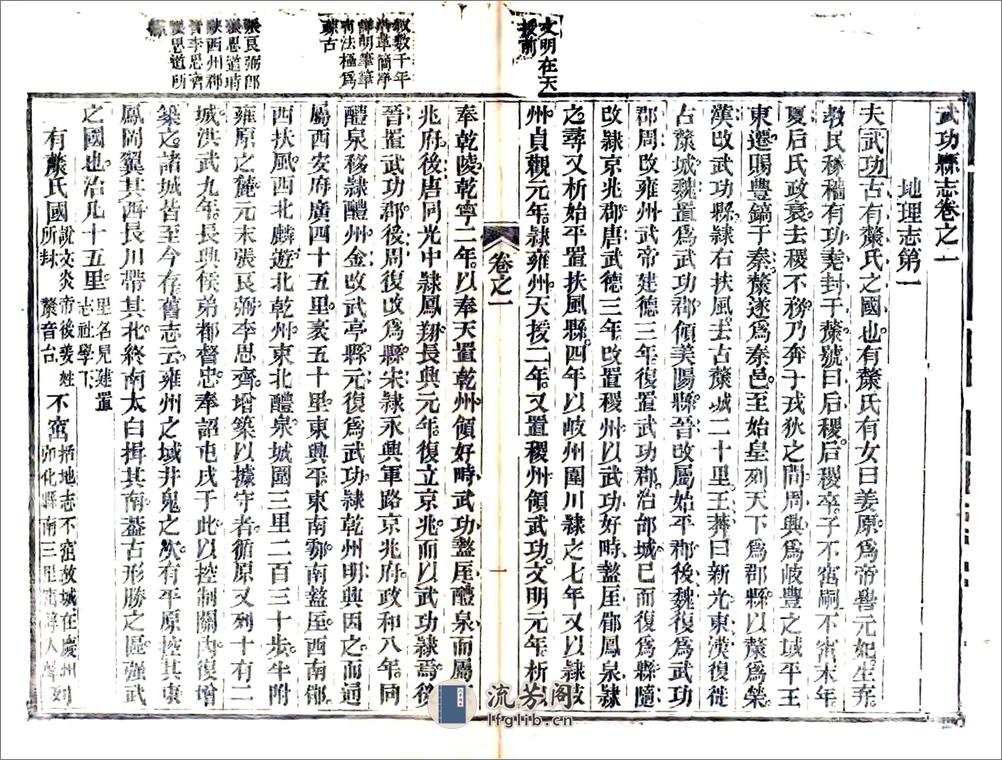 武功縣志卷之一
地理志第一
夫武功古有漦氏之國也有漦氏有女曰姜原爲帝嚳元妃生棄
教民稼穡有功堯封于漦號曰后稷后稷卒子不窋嗣不窋末年
夏后氏政衰去稷不務乃奔于戎狄之間周興爲岐豐之域平王
東遷賜豐鎬于秦漦遂爲秦邑至始皇列天下爲郡縣以漦爲漦
漢改武功縣右扶風去古漦城二十里王莽曰新光東漢復徙
古漦城魏置爲武功郡領美陽縣晉改屬始平郡後魏復爲武功
郡周改雍州武帝建德三年復置武功郡治邰城已而復爲縣隨
改隸京兆郡唐武德三年改置稷州以武功好畤盩厔郿鳳泉隸
之尋又析始平置扶風縣四年以岐州圍川隸之七年又以隸岐
州貞觀元年隸雍州天授二年又置稷州領武功文明元年析
文明在天
授前
卷之一
一
奉乾陵乾寧二年以奉天置乾州領好畤武功盩厔醴泉而屬
兆府後唐同光中隸鳳翔長興元年復立京兆而以武功隸焉後
晉置武功郡後周復改爲縣宋隸永興軍路京兆府政和八年同
醴泉移隸醴州金改武亭縣元復爲武功隸乾州明興因之而通
屬西安府廣四十五里袤五十里東興平東南鄠南盩厔西南郿
西扶風西北麟遊北乾州東北醴泉城圍三里二百三十步半附
雍原之麓元末張良弼李思齊增築以據守者循原又列十有二
城洪武九年長興侯弟都督忠奉詔屯戍于此以控制關內復增
築之諸城皆至今存舊志云雍州之域井鬼之次有平原控其東
鳳岡翼其西長川帶其北終南太白揖其南葢古形勝之區強武
之國也治凡十五里里名見建置志社學下
有漦氏國說文炎帝後姜姓所封漦音台不窋括地志不窋故城在慶州
弘化縣南三里
敍數千年
沿革簡淨
詳明筆筆
有法極爲
張良弼郎
張思道時
陝西州郡